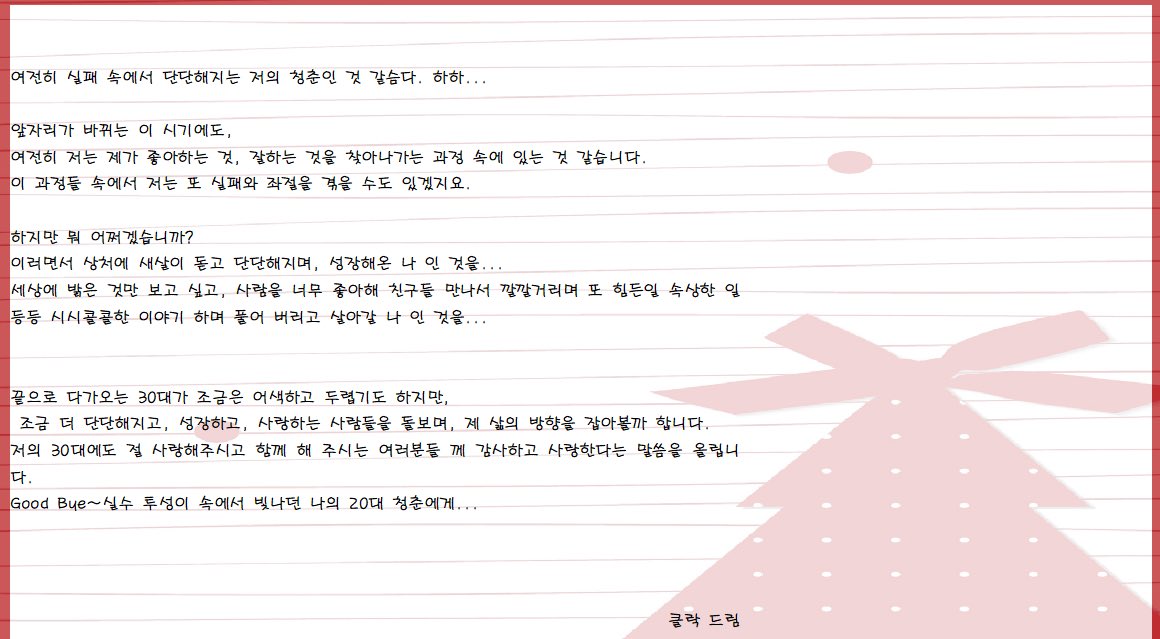 여전히 실패 속에서 단단해지는 저의 청춘인 것 같슴다. 하하...
앞자리가 바뀌는 이 시기에도,
여전히 저는 제가 좋아하는 것, 잘하는 것을 찾아나가는 과정 속에 있는 것 같습니다.
이 과정들 속에서 저는 또 실패와 좌절을 겪을 수도 있겠지요.
하지만 뭐 어쩌겠습니까?
이러면서 상처에 새살이 돋고 단단해지며, 성장해온 나 인 것을...
세상에 밝은 것만 보고 싶고, 사람을 너무 좋아해 친구들 만나서 깔깔거리며 또 힘든일 속상한 일
등등 시시콜콜한 이야기 하며 풀어 버리고 살아갈 나 인 것을...
끝으로 다가오는 30대가 조금은 어색하고 두렵기도 하지만,
조금 더 단단해지고, 성장하고, 사랑하는 사람들을 돌보며, 제 삶의 방향을 잡아볼까 합니다.
저의 30대에도 절 사랑해주시고 함께 해 주시는 여러분들 께 감사하고 사랑한다는 말씀을 올립니
다.
Good Bye~실수 투성이 속에서 빛나던 나의 20대 청춘에게...
클락 드림